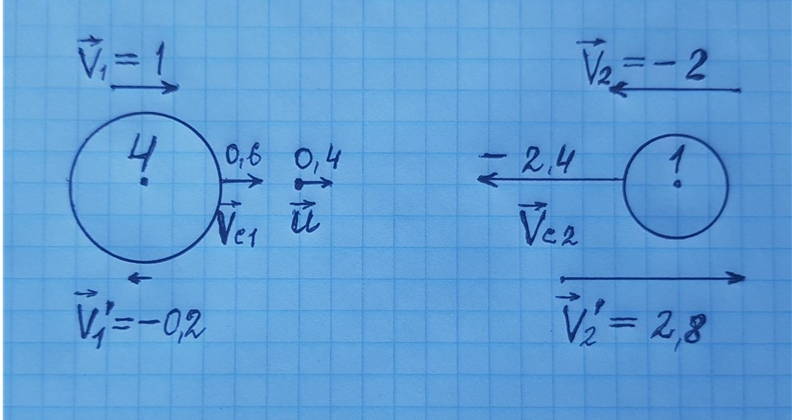 V⃗₁ = 1
V⃗₂ = -2
4
0,6
0,4
- 2,4
1
V⃗c1
u⃗
V⃗c2
V⃗₁' = -0,2
V⃗₂' = 2,8